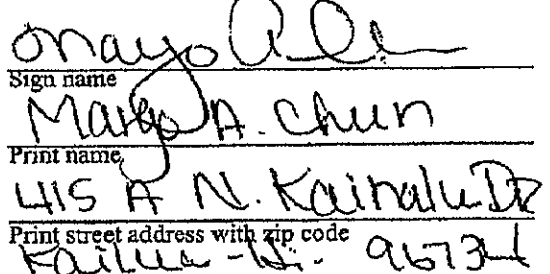 Sign name
Margo A. Chun
Print name
415 A N. Kainalu Dr
Print street address with zip code
Kailua - Hi. 96734